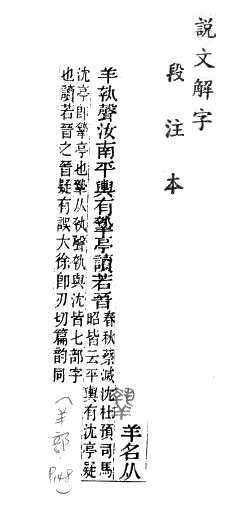 説文解字
段注本
𦎷 羊名从
羊執聲汝南平輿有𦎷亭讀若晉
春秋蔡滅沈杜預司馬
昭皆云平輿有沈亭疑
沈亭即𦎷亭也𦎷从執聲執與沈皆七部字
也讀若晉之晉疑有誤大徐即刃切篇韵同
(羊部 P.148)